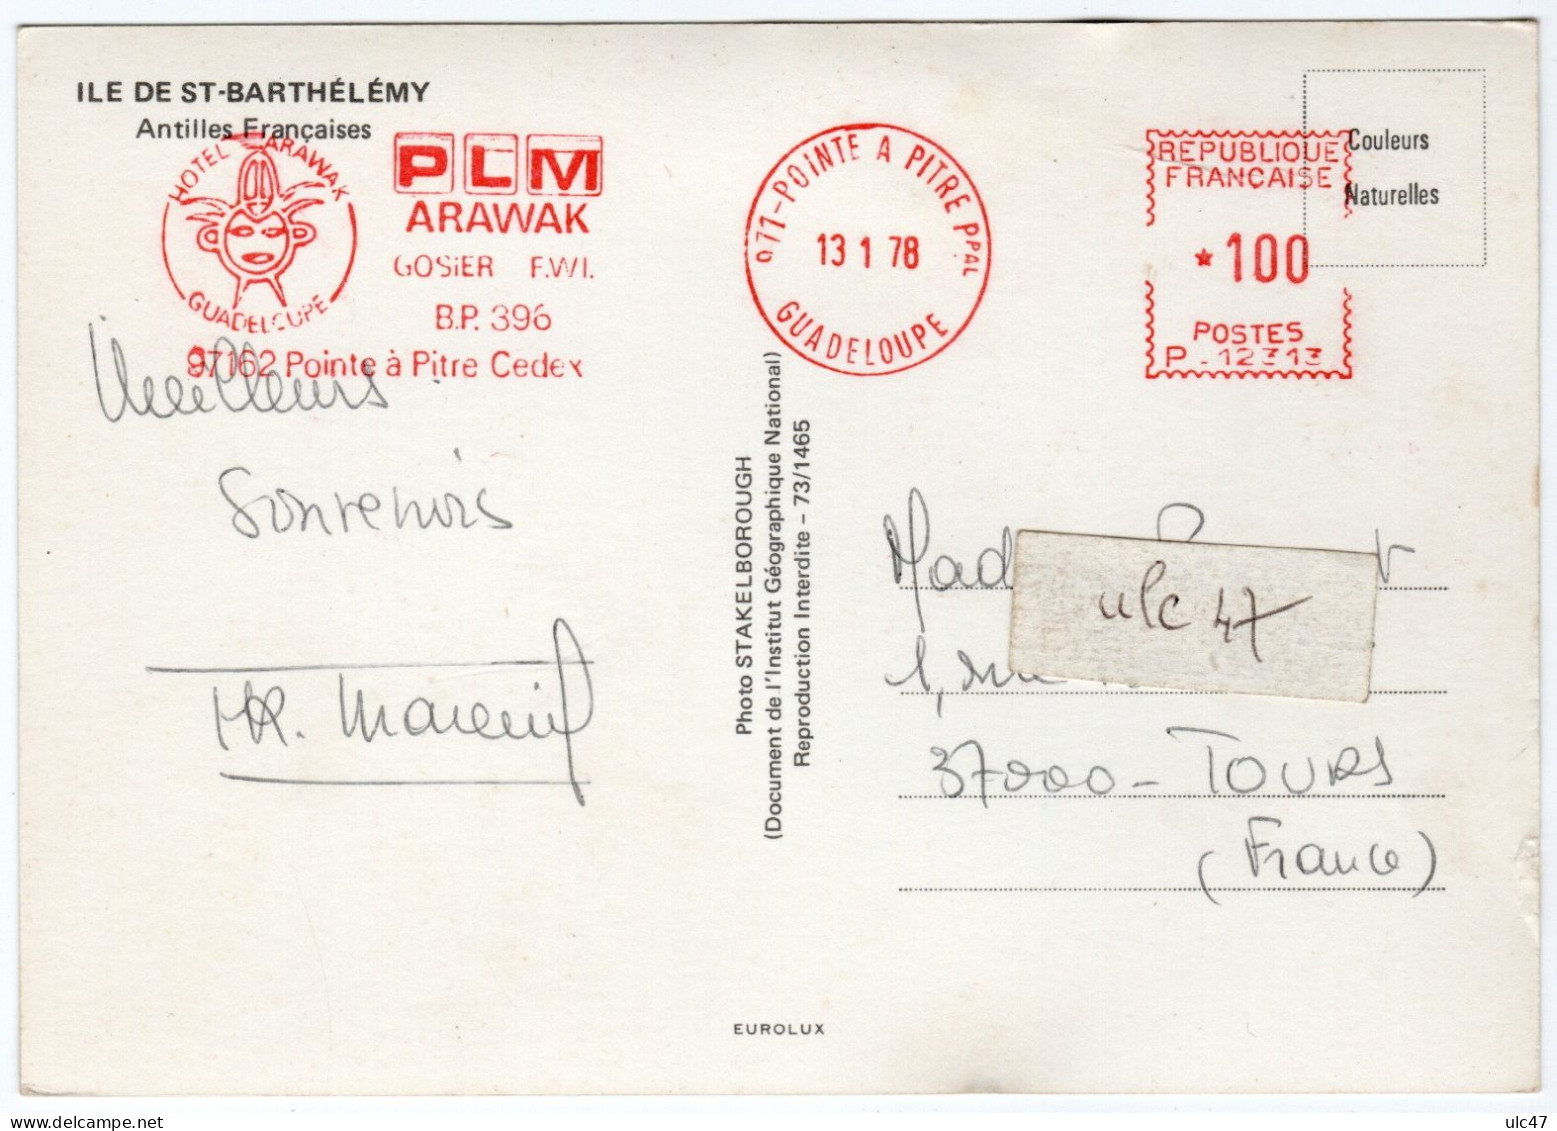 ILE DE ST-BARTHÉLÉMY
Antilles Françaises
HOTEL ARAWAK
GUADELOUPE
PLM
ARAWAK
GOSIER F.W.I.
B.P. 396
97162 Pointe à Pitre Cedex
971-POINTE A PITRE PPAL
13 1 78
GUADELOUPE
REPUBLIQUE
FRANÇAISE
* 100
POSTES
P. 12313
Couleurs
Naturelles
Meilleurs
Souvenirs
Photo STAKELBOROUGH
(Document de l'Institut Géographique National)
Reproduction Interdite - 73/1465
Mad
ulc 47
1, rue
37000 - TOURS
(France)
EUROLUX
delcampe.net
ulc47